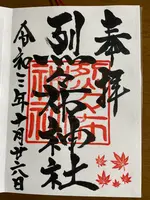 奉拝
烈々布神社
令和三年十月廿六日